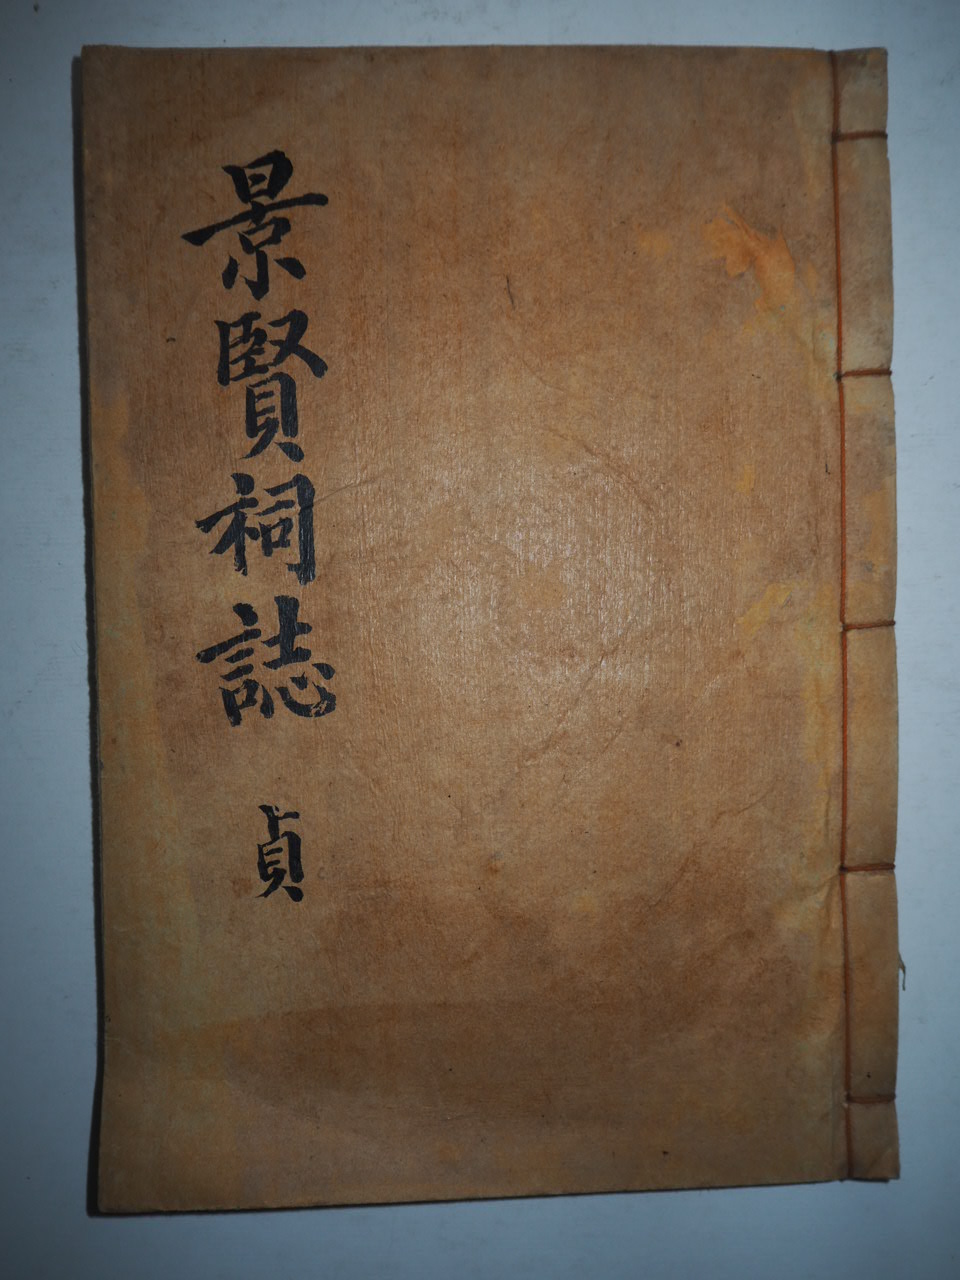 景賢祠誌 貞